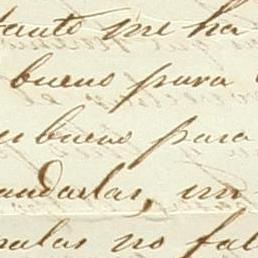 tanto me ha
buenos para
buenos para
andarlas, un
malas no fal